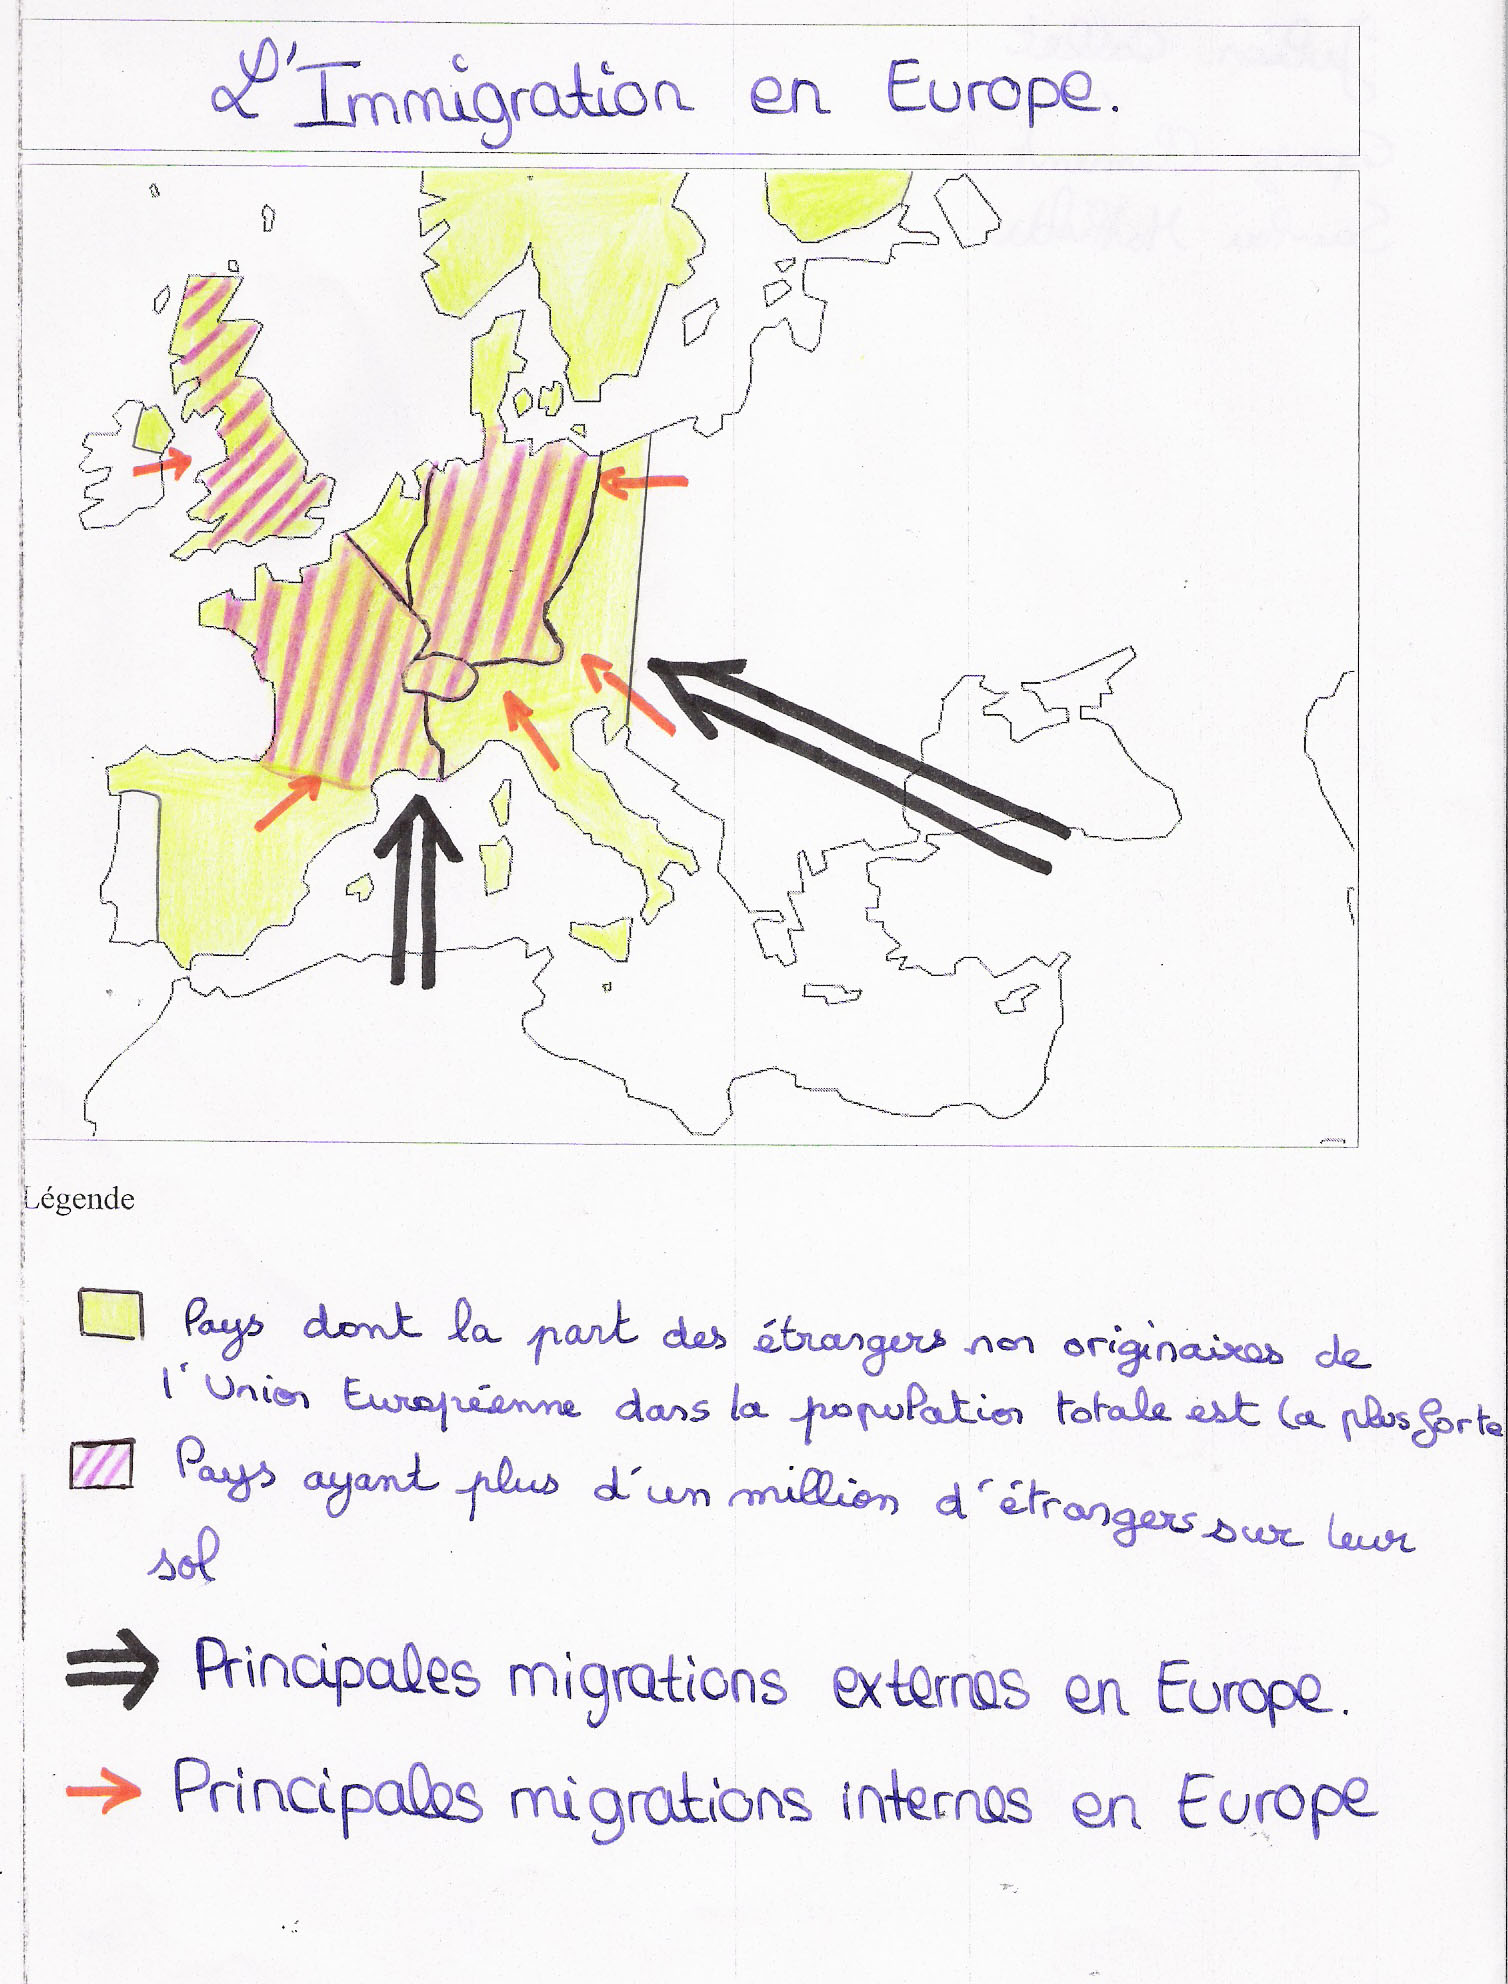 L'Immigration en Europe.
Légende
Pays dont la part des étrangers non originaires de
l'Union Européenne dans la population totale est la plus forte
Pays ayant plus d'un million d'étrangers sur leur
sol
Principales migrations externes en Europe.
Principales migrations internes en Europe